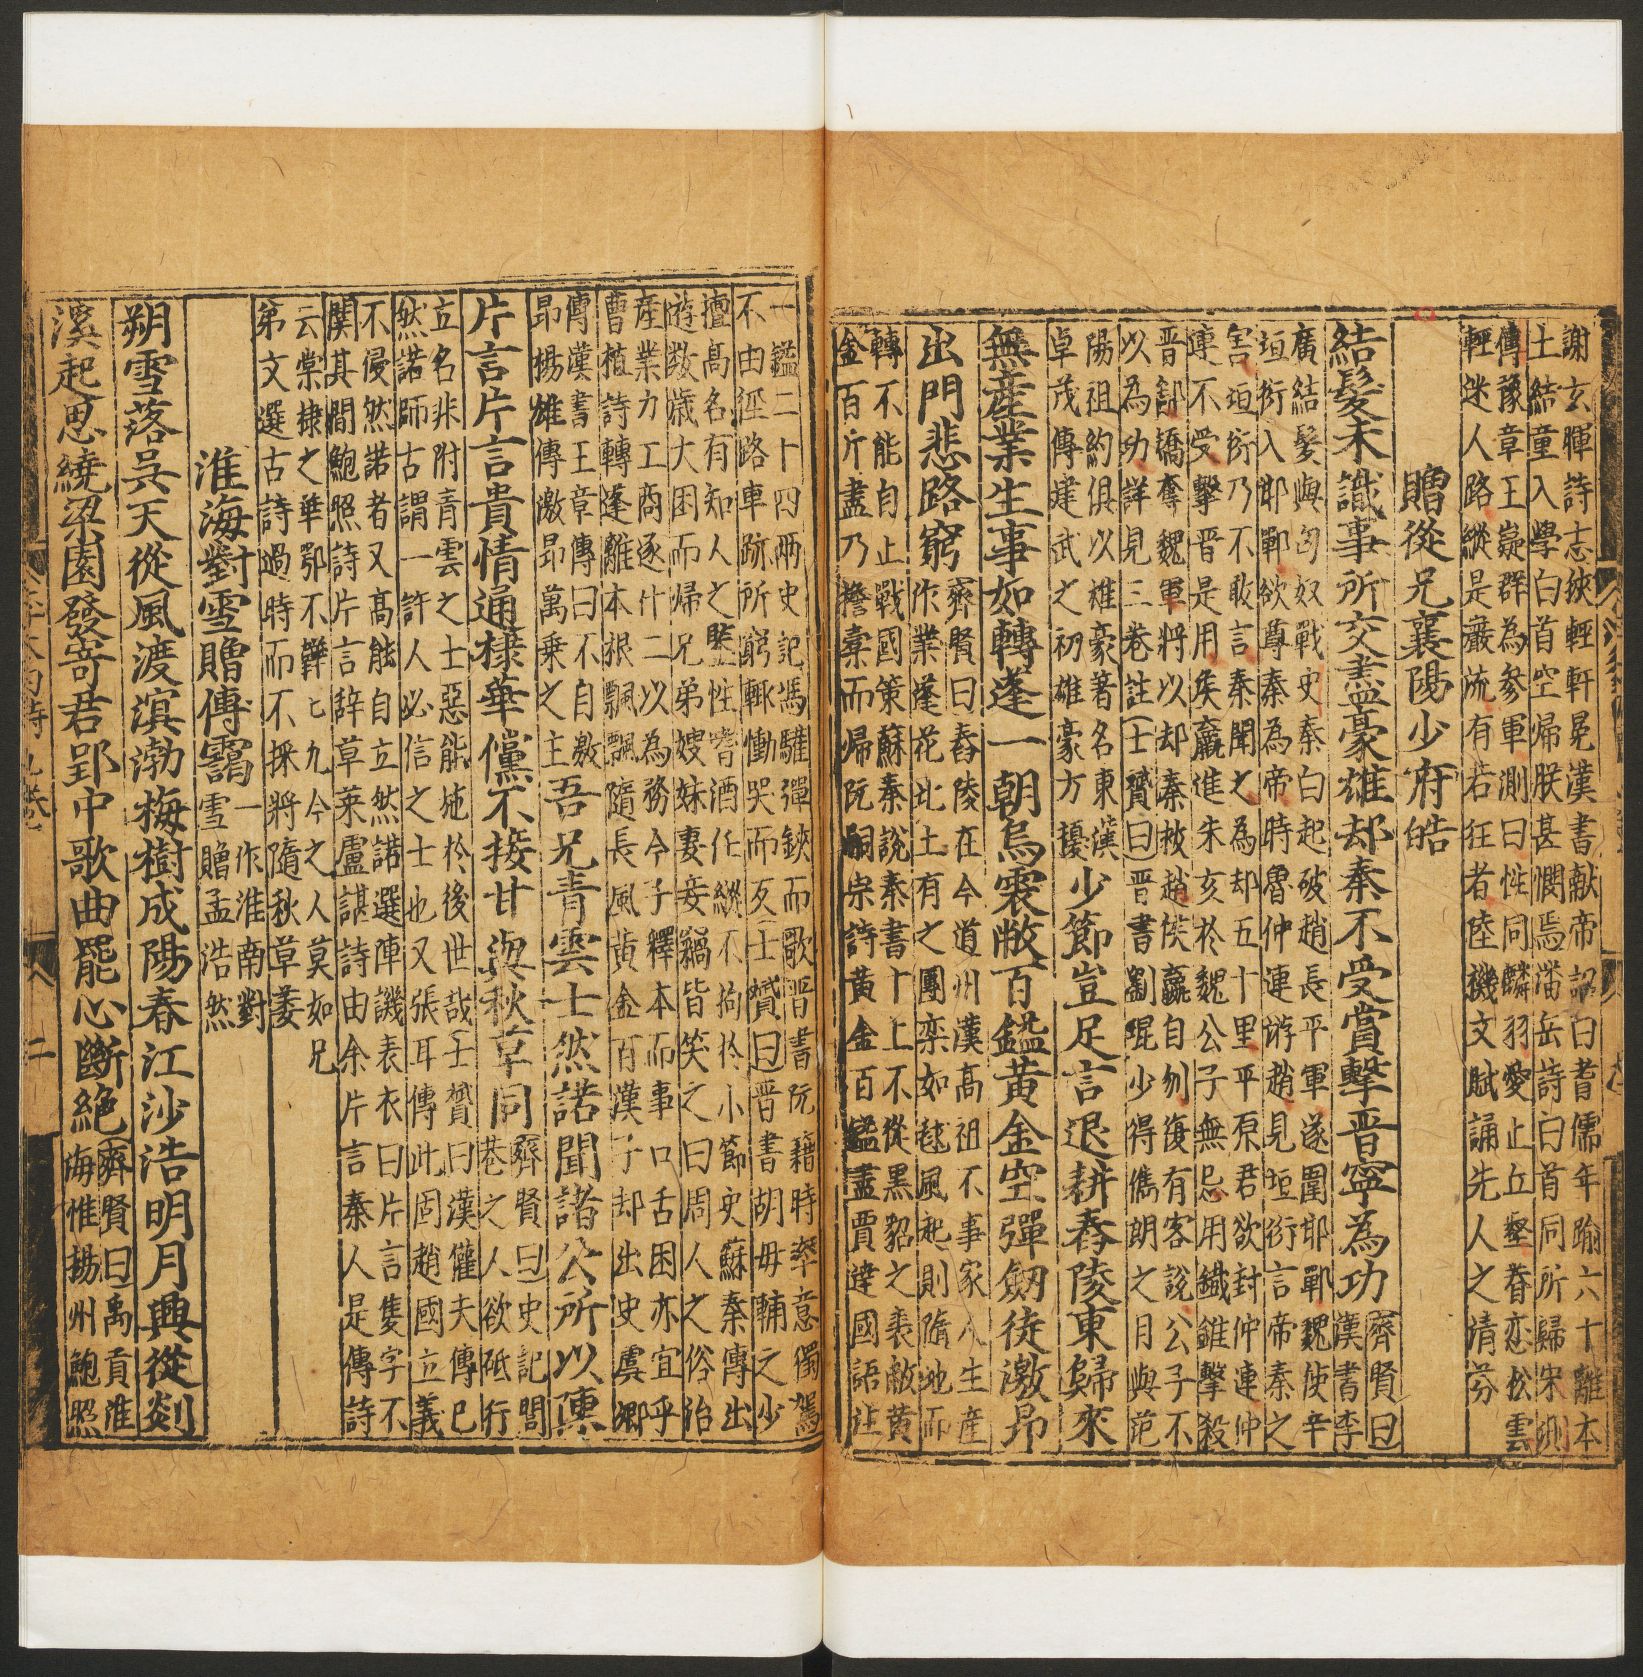 謝玄暉詩志狹輕軒冕漢書献帝詔曰耆儒年踰六十離本
土結童入學白首空帰朕甚憫焉潘岳詩白首同所歸宋測
傳豫章王嶷群為參軍測曰性同麟羽愛止丘壑眷恋松雲
輕迷人路縱是巖流有若狂者陸機文賦誦先人之清芬
贈從兄襄陽少府皓
結髮未識事所交盡豪雄却秦不受賞擊晋寧為功
齊賢曰
漢書李
廣結髮與匈奴戰史秦白起破趙長平軍遂圍邯鄲魏使辛
垣衍入邯鄲欲尊秦為帝時魯仲連游趙見垣衍言帝秦之
害垣衍乃不敢言秦聞之為却五十里平原君欲封仲連仲
連不受擊晋是用侯嬴進朱亥於魏公子無忌用鐵錐擊殺
晋鄙矯奪魏軍將以却秦救趙侯嬴自刎復有客說公子不
以為功詳見三巷註士贇曰晋書劉琨少得儁朗之目與范
陽祖約俱以雄豪著名東漢
卓茂傳建武之初雄豪方擾
少節豈足言退耕舂陵東歸來
無產業生事如轉蓬一朝烏裘敝百鎰黃金空彈劒徒激昂
出門悲路窮
齊賢曰舂陵在今道州漢高祖不事家人生産
作業蓬花北土有之團栾如毬風起則隨地而
轉不能自止戰國策蘇秦說秦書十上不從黑貂之裘敝黃
金百斤盡乃擔橐而帰阮嗣宗詩黃金百鎰盡賈逵國語註
一鎰二十四兩史記馮驩彈鋏而歌晋書阮籍時率意獨駕
不由徑路車跡所窮輒慟哭而反士贇曰晋書胡毋輔之少
擅髙名有知人之鑒性嗜酒任縱不拘於小節史蘇秦傳出
遊数歲大困而帰兄弟嫂妹妻妾竊皆笑之曰周人之俗治
産業力工商逐什二以為務今子釋本而事口舌困亦宜乎
曹植詩轉蓬離本根飄飄隨長風黃金百漢子却出史虞卿
傳漢書王章傳曰不自激
昂揚雄傳激昂萬乗之主
吾兄青雲士然諾聞諸公所以陳
片言片言貴情通棣華儻不接甘與秋草同
齊賢曰史記閭
巷之人欲砥行
立名非附青雲之士惡能施於後世哉士贇曰漢權夫傳已
然諾師古謂一許人必信之士也又張耳傳此固趙國立義
不侵然諾者又髙能自立然諾選陣譏表衣曰片言隻字不
関其間鮑照詩片言辞草莱盧諶詩由余片言秦人是傳詩
云棠棣之華鄂不韡匕九今之人莫如兄
第文選古詩過時而不採將隨秋草萎
淮海對雪贈傅靄
一作淮南對
雪贈孟浩然
朔雪落吳天從風渡溟渤梅樹成陽春江沙浩明月興從剡
溪起思繞梁園發寄君郢中歌曲罷心斷絶
齊賢曰禹貢淮
海惟揚州鮑照